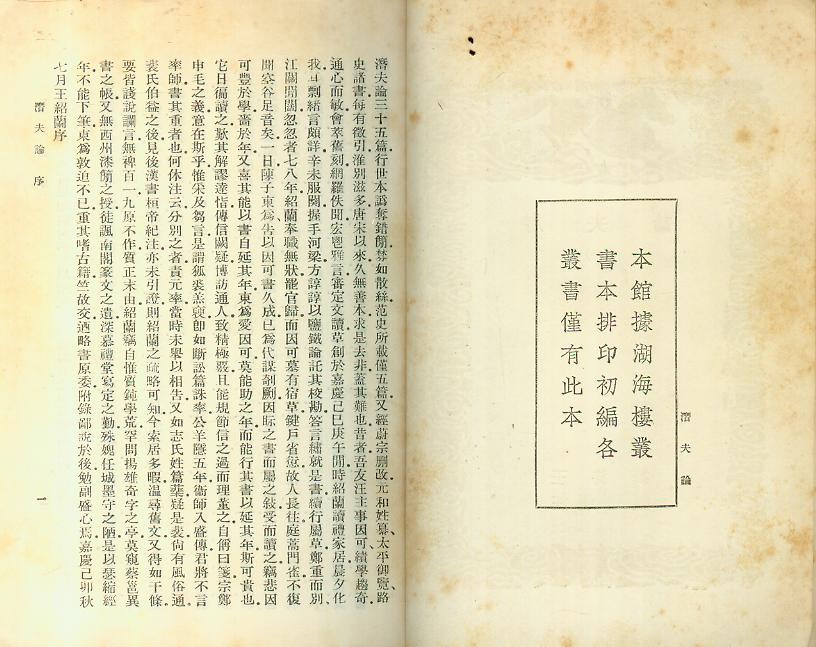 潛夫論
本館據湖海樓叢
書本排印初編各
叢書僅有此本
潛夫論三十五篇行世本譌奪錯簡棼如散絲范史所載僅五篇又經蔚宗刪改元和姓纂、太平御覽、路
史諸書每有徵引淮別滋多唐宋以來久無善本求是去非蓋其難也昔者吾友汪主事因可績學超奇
通心而敏會萃舊刻網羅佚聞宏鬯雅言審定文讀草創於嘉慶己巳庚午間時紹蘭讀禮家居晨夕化
我耳劘緒言頗詳辛未服闋握手河梁方諄諄以鹽鐵論託其校勘答言繡就是書續行屬草鄭重而別
江關閒闊忽忽者七八年紹蘭奉職無狀罷官歸而因可墓有宿草鍵戶省愆故人長往庭蒿門雀不復
聞空谷足音矣一日陳子東爲告以因可書久成已爲代謀剞劂因眎之書而屬之敍受而讀之竊悲因
可豐於學嗇於年又喜其能以書自延其年東爲愛因可莫能助之年而能行其書以延其年斯可貴也
它日徧讀之歎其解謬達恉傳信闕疑博訪通人致精極覈且能規節信之過而理董之自偁曰箋宗鄭
申毛之義意在斯乎惟采及芻言是謂狐裘羔袖卽如斷訟篇誅率公羊隱五年衞師入盛傳君將不言
率師書其重者也何休注云分別之者責元率當時未舉以相告又如志氏姓篇疑是裴尙有風俗通
裴氏伯益之後見後漢書桓帝紀注亦未引證則紹蘭之疏略可知今索居多暇溫尋舊文又得如干條
要皆諓說讕言無裨百一九原不作質正末由紹蘭竊自惟質鈍學荒罕問揚雄奇字之亭莫窺蔡邕異
書之帳又無西州漆簡之授徒諷南閣篆文之遺深慕禮堂寫定之勤殊媿任城墨守之陋是以瑟縮經
年不能下筆東爲敦迫不已重其嗜古籍竺故交迺略書原委附錄鄙說於後勉副盛心焉嘉慶己卯秋
七月王紹蘭序
潛夫論 序
一